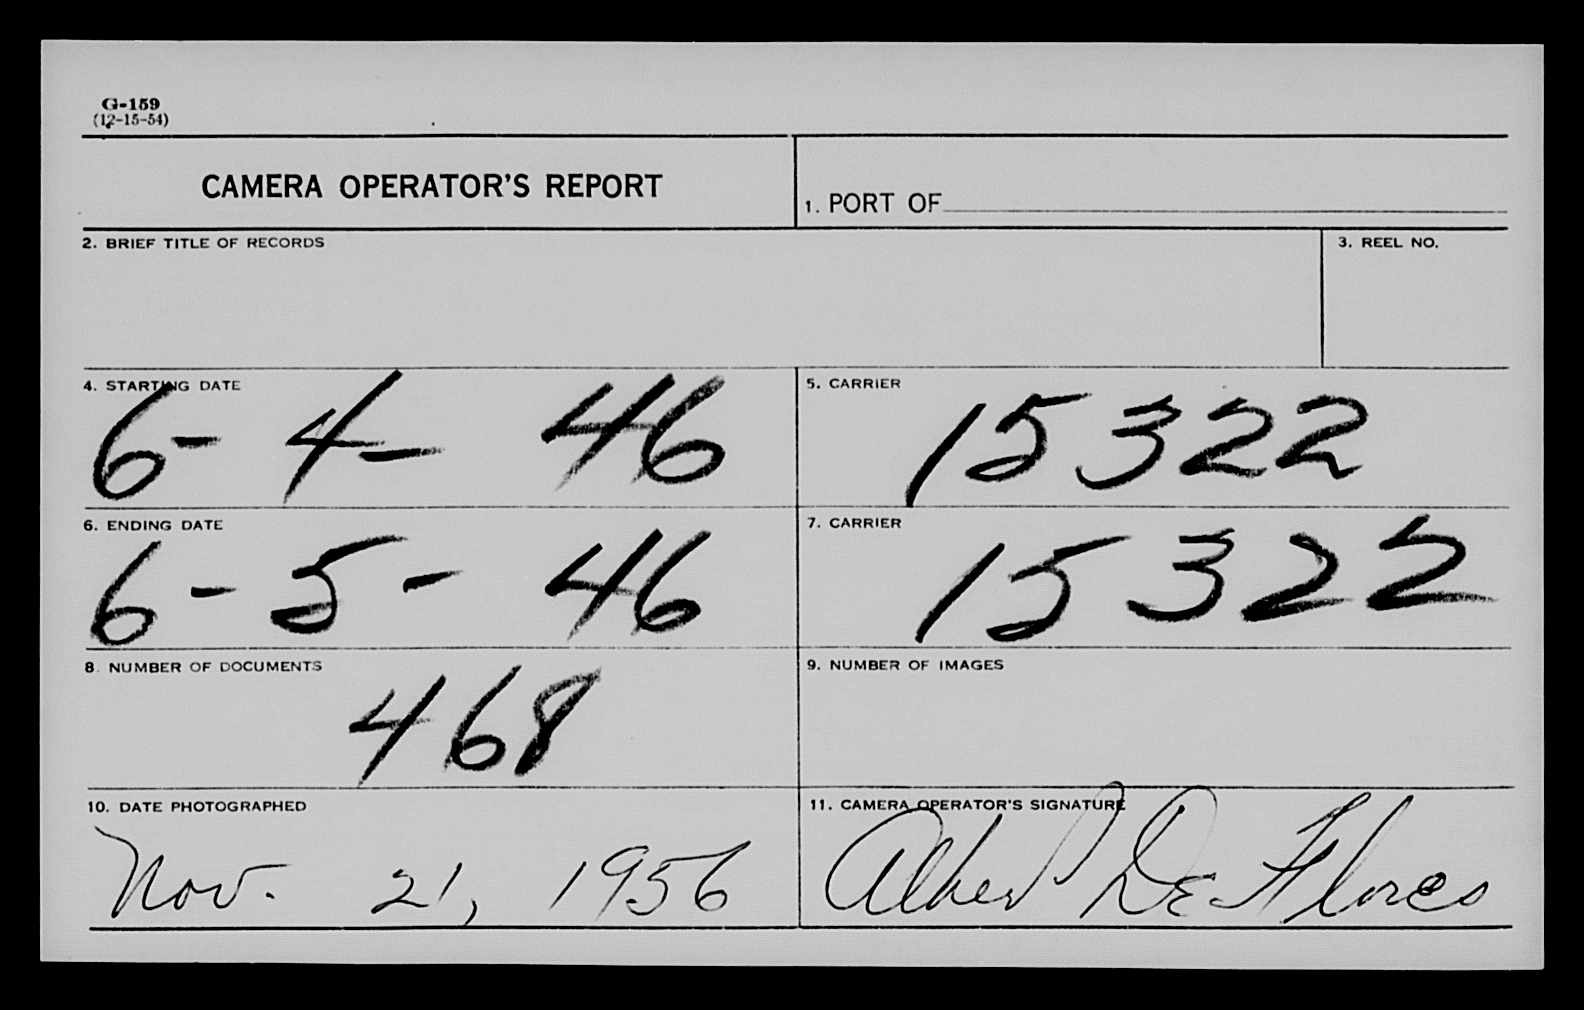 G-159
(12-15-54)
CAMERA OPERATOR'S REPORT
1. PORT OF
2. BRIEF TITLE OF RECORDS
3. REEL NO.
4. STARTING DATE
6- 4- 46
5. CARRIER
15322
6. ENDING DATE
6-5-46
7. CARRIER
15322
8. NUMBER OF DOCUMENTS
468
9. NUMBER OF IMAGES
10. DATE PHOTOGRAPHED
Nov. 21, 1956
11. CAMERA OPERATOR'S SIGNATURE
Albert De Flores